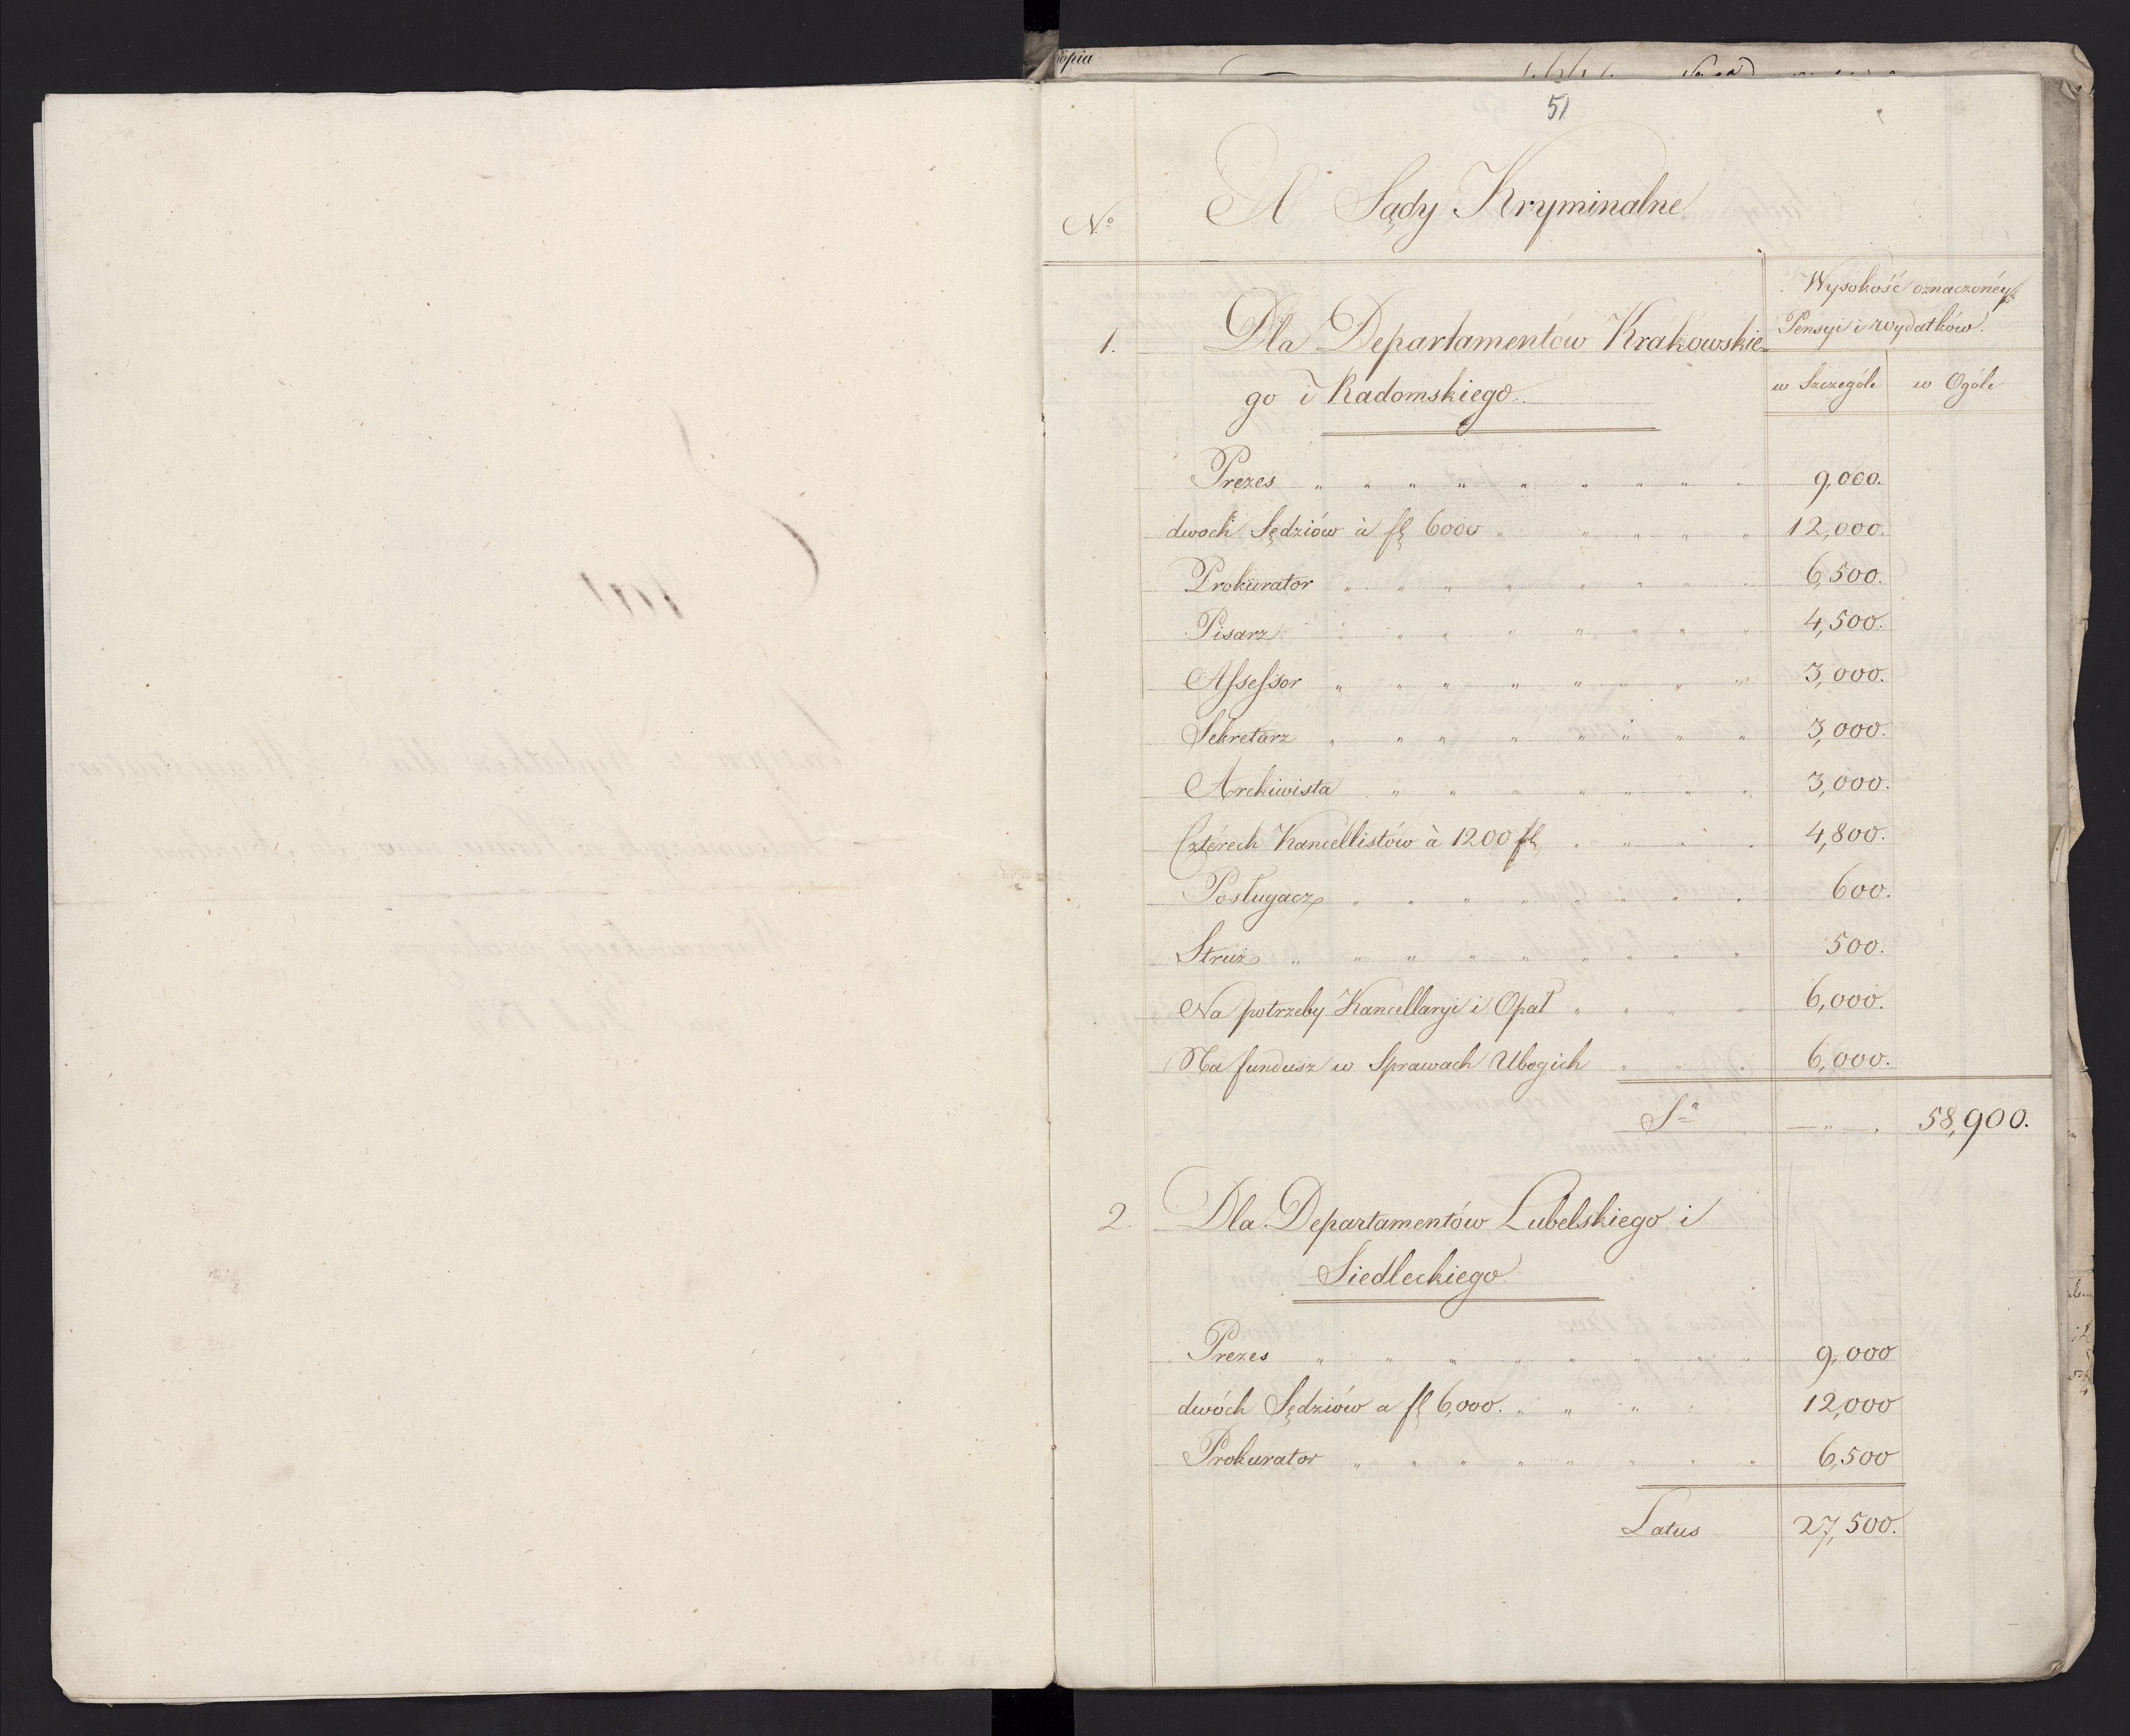 opia
51
A Sądy Kryminalne
No
Wysokość oznaczonéy
Pensyi i wydatków.
w Szczególe w Ogóle
1. Dla Departamentów Krakowskie-
go i Radomskiego.
Prezes " " " " " " " " " 9,000.
dwoch Sędziów à fl 6000 " " " " " 12,000.
Prokurator " " " " " " " " 6,500.
Pisarz " " " " " " " " 4,500.
Assessor " " " " " " " " 3,000.
Sekretarz " " " " " " " " 3,000.
Archiwista " " " " " " " 3,000.
Czterech Kancellistów à 1200 fl " " " " 4,800.
Posługacz " " " " " " " " 600.
Struż " " " " " " " " " 500.
Na potrzeby Kancellaryi i Opał " " " " 6,000.
Na fundusz w Sprawach Ubogich " " " 6,000.
Sa — " — " 58,900.
2. Dla Departamentów Lubelskiego i
Siedleckiego
Prezes " " " " " " " " 9,000
dwóch Sędziów a fl 6,000. " " " " 12,000
Prokurator " " " " " " " " 6,500
Latus 27,500.